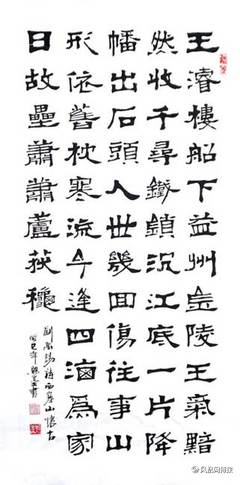 王濬樓船下益州金陵王氣黯
然收千尋鐵鎖沉江底一片降
幡出石頭人世幾回傷往事山
形依舊枕寒流今逢四海為家
日故壘蕭蕭蘆荻穐
劉禹錫詩西塞山懷古
巳年書